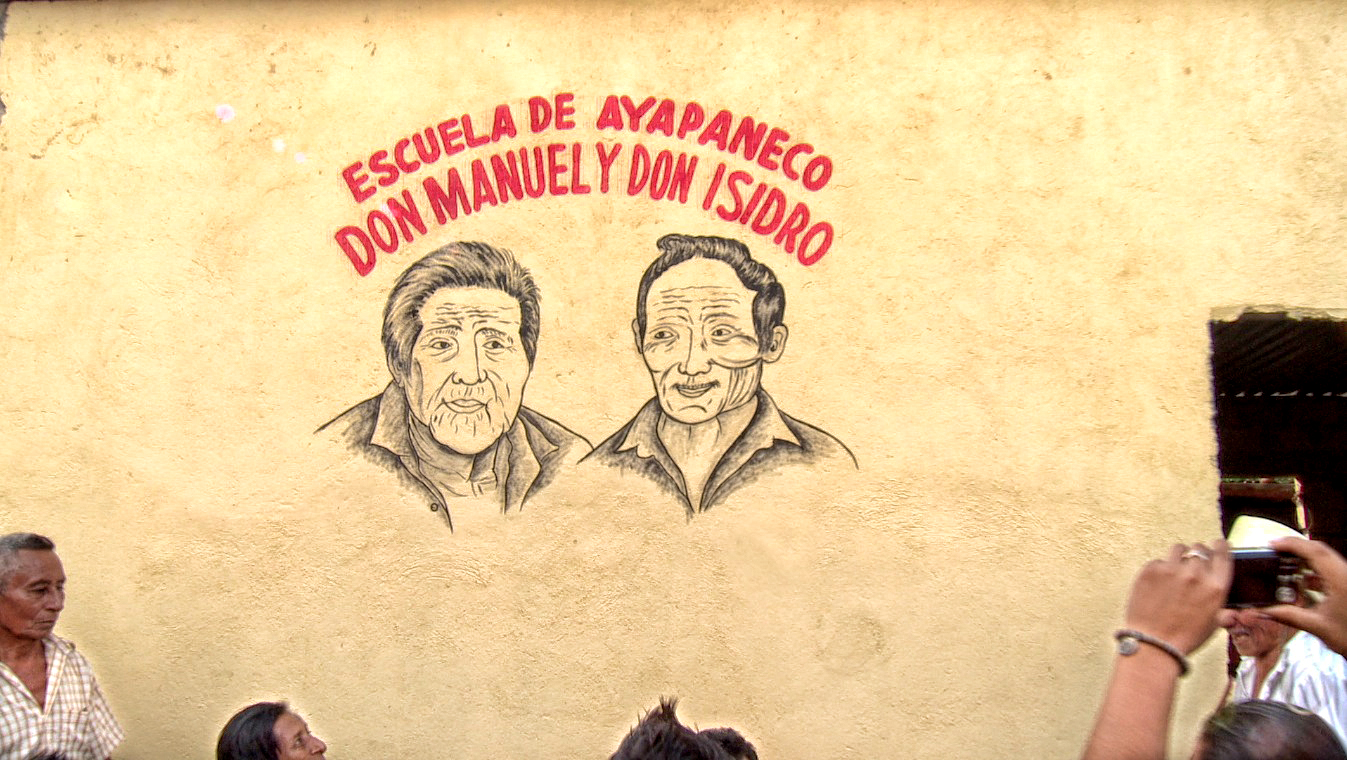 ESCUELA DE AYAPANECO
DON MANUEL Y DON ISIDRO